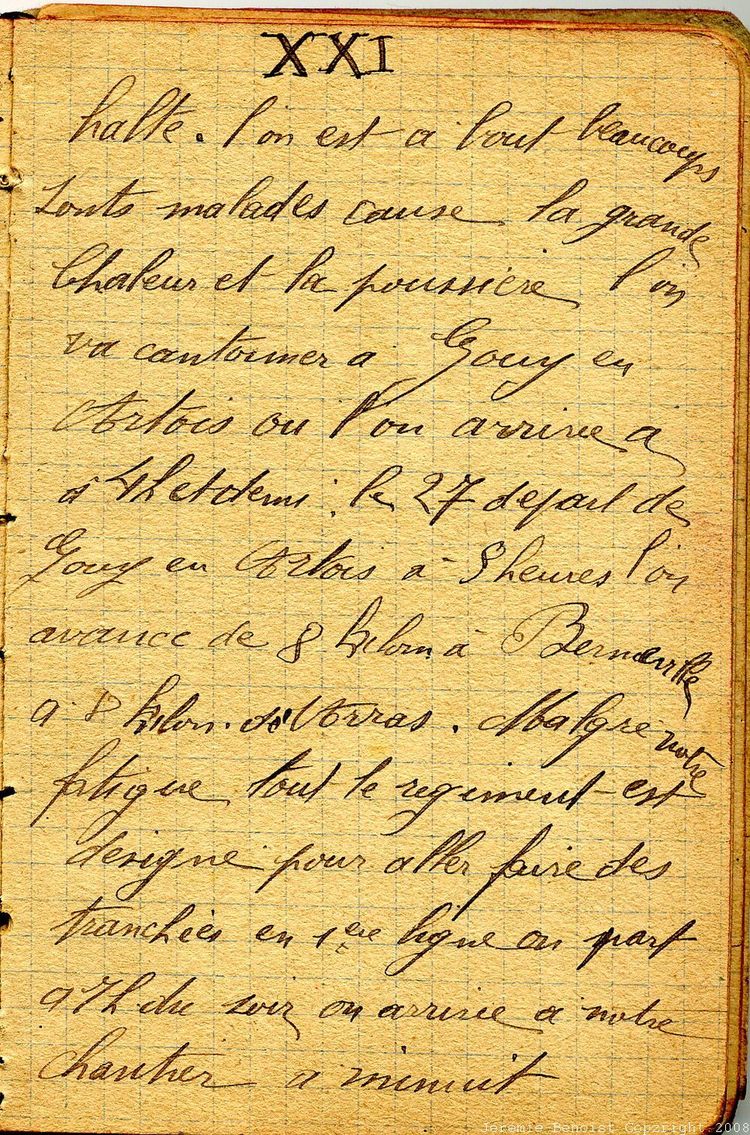 XXI
halte. l'on est a bout beaucoups
sonts malades cause la grande
Chaleur et la poussière l'on
va cantonner a Gouy en
Artois ou l'on arrive a
a 4h et demi. le 27 depart de
Gouy en Artois a 8 heures l'on
avance de 8 kilom a Bernerville
a 8 kilom. d'Arras. Malgre notre
fatigue tout le regiment est
designe pour aller faire des
tranchées en 1ere ligne on part
a 7h du soir on arrive a notre
chantier a minuit
Jeremie Benoist Copyright 2008